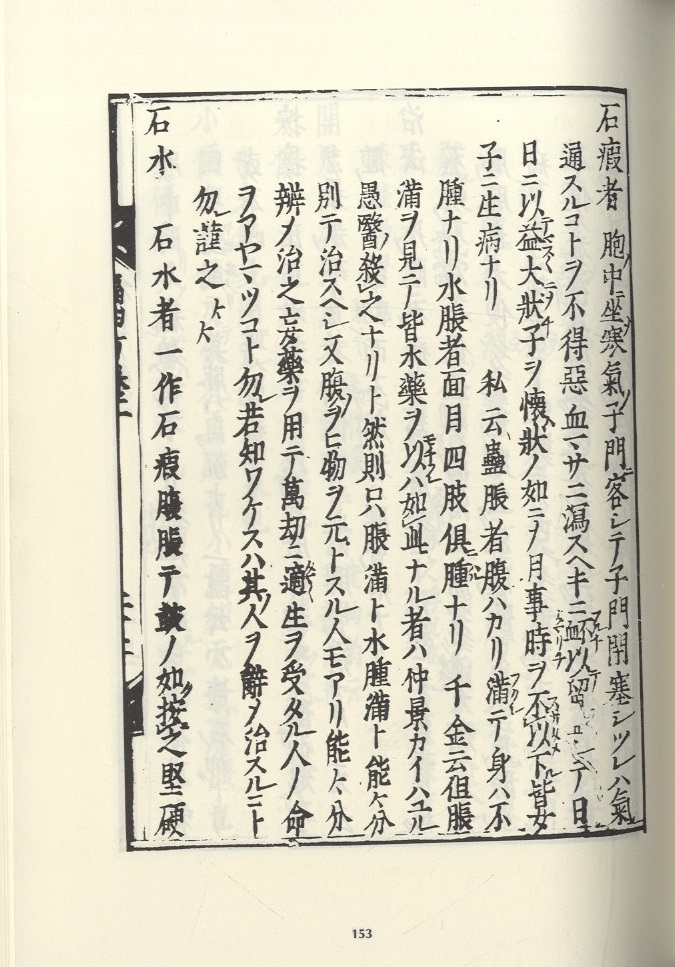 石瘕者 胞中坐寒氣子門客シテ子門閉塞シツレハ氣
通スルコトヲ不得惡血マサニ瀉スヘキニ血以留シテ日
日ニ以益大狀子ヲ懷狀ノ如ニノ月事時ヲ不以下皆女
子ニ生病ナリ 私云蠱脹者腹ハカリ滿テ身ハ不
腫ナリ水脹者面目四肢俱腫ナリ 千金云但脹
滿ヲ見テ皆水藥ヲ以ハ如此ナル者ハ仲景カイハユル
愚醫殺之ナリト然則只脹滿ト水腫滿ト能々分
別テ治スヘシ又腹ヲヒ物ヲ元トスル人モアリ能々分
辨メ治之妄藥ヲ用テ萬劫ニ適生ヲ受タル人ノ命
ヲアヤマツコト勿若知ワケスハ其人ヲ辭メ治スルニト
勿謹之々々
石水 石水者一作石瘕腹脹テ鼓ノ如按之堅硬
153